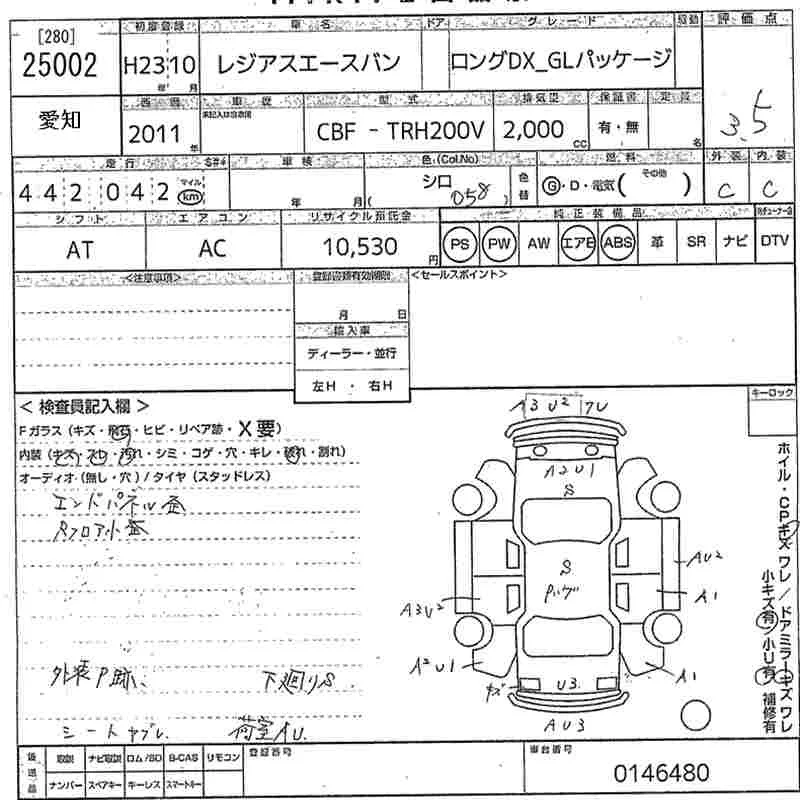 [280]
25002
初度登録
車名
ドア
グレード
駆動
評価点
H23 10
年 月
レジアスエースバン
ロングDX_GLパッケージ
3.5
愛知
西暦
車歴
型式
排気量
保証書
定員
2011
年
未記入は自家用
CBF - TRH200V
2,000
CC
有・無
名
外装
内装
C
C
走行
車検
色(Col.No)
燃料
442 042
マイル
km
年 月
シロ
(058)
色替
G・D・電気( その他 )
シフト
エアコン
リサイクル預託金
純正装備品
AT
AC
10,530
円
PS
PW
AW
エアB
ABS
革
SR
ナビ
DTV
<注意事項>
登録書類有効期限
<セールスポイント>
月 日
輸入車
ディーラー・並行
左H ・ 右H
<検査員記入欄>
キーロック
Fガラス(キズ・飛石・ヒビ・リペア跡・X要)
内装(キズ・スレ・汚れ・シミ・コゲ・穴・キレ・破れ・割れ)
オーディオ(無し・穴)/タイヤ(スタッドレス)
エンドパネル歪
Rフロア小歪
外装P跡、
下廻りS
シートヤブレ.
荷室AU.
A3 U2
7U
A2U1
S
S
AU2
A1
A3U2
A2U1
A1
キズ
U3.
AU3
ホイル・CPキズワレ/ドアミラーキズワレ
小キズ有/小U有/補修有
備送品
取説
ナビ取説
ロム/SD
B-CAS
リモコン
ナンバー
スペアキー
キーレス
スマートキー
登録番号
車台番号
0146480